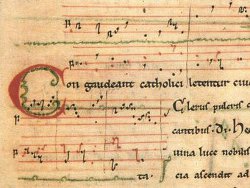 Congaudeant catholici letentur ciu
Clerus pulcris c
cantibus. d. h
uina luce nobilis
ta cia ascendit ad